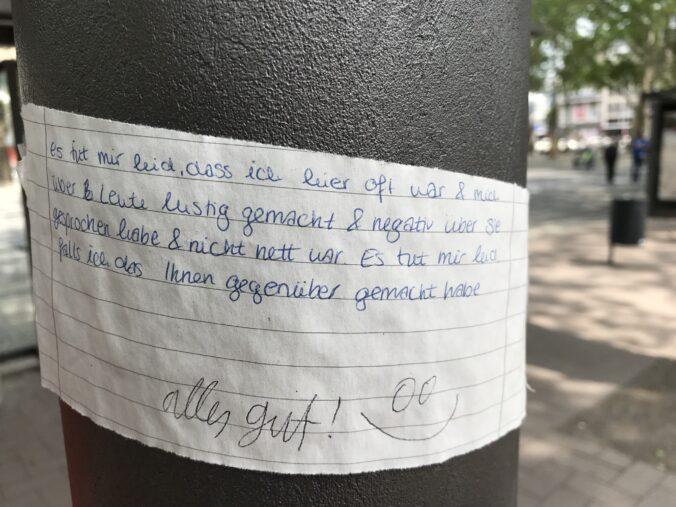 es tut mir leid, dass ich hier oft war & mich
über Leute lustig gemacht & negativ über sie
gesprochen habe & nicht nett war. Es tut mir leid
falls ich das Ihnen gegenüber gemacht habe
alles gut!